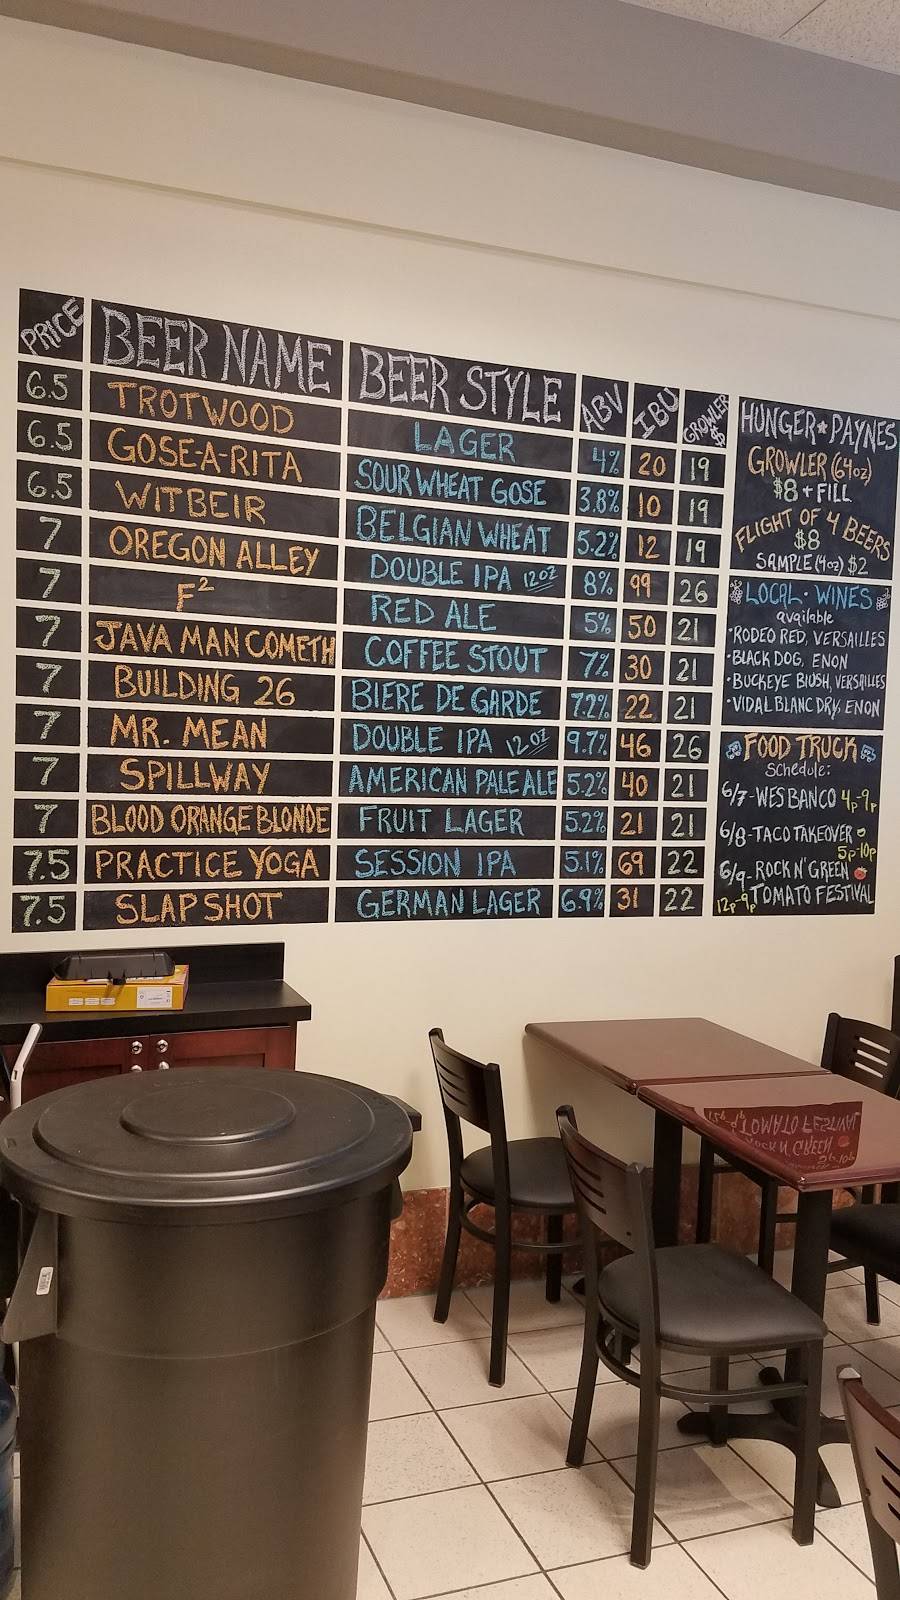 PRICE BEER NAME BEER STYLE ABV IBU GROWLER $$
6.5 TROTWOOD LAGER 4% 20 19
6.5 GOSE-A-RITA SOUR WHEAT GOSE 3.8% 10 19
6.5 WITBEIR BELGIAN WHEAT 5.2% 12 19
7 OREGON ALLEY DOUBLE IPA 12oz 8% 99 26
7 F² RED ALE 5% 50 21
7 JAVA MAN COMETH COFFEE STOUT 7% 30 21
7 BUILDING 26 BIERE DE GARDE 7.2% 22 21
7 MR. MEAN DOUBLE IPA 12oz 9.7% 46 26
7 SPILLWAY AMERICAN PALE ALE 5.2% 40 21
7 BLOOD ORANGE BLONDE FRUIT LAGER 5.2% 21 21
7.5 PRACTICE YOGA SESSION IPA 5.1% 69 22
7.5 SLAPSHOT GERMAN LAGER 6.9% 31 22
HUNGER★PAYNES
GROWLER (64oz)
$8 + FILL
FLIGHT OF 4 BEERS
$8
SAMPLE (4oz) $2
LOCAL · WINES
available
•RODEO RED, VERSAILLES
•BLACK DOG, ENON
•BUCKEYE BLUSH, VERSAILLES
•VIDAL BLANC DRY, ENON
FOOD TRUCK
Schedule:
6/7-WESBANCO 4p-9p
6/8-TACO TAKEOVER
5p-10p
6/9-ROCK N' GREEN
12p-9p TOMATO FESTIVAL